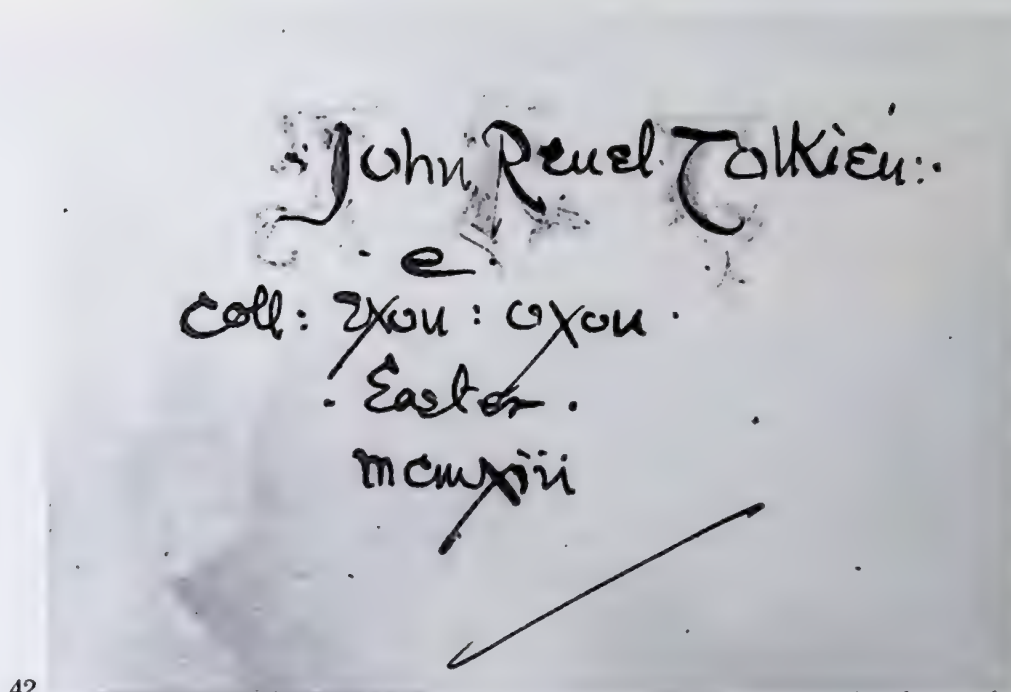 John Reuel Tolkien:.
. e .
Coll: Exon: Oxon .
. Easter .
mcmxiii
42